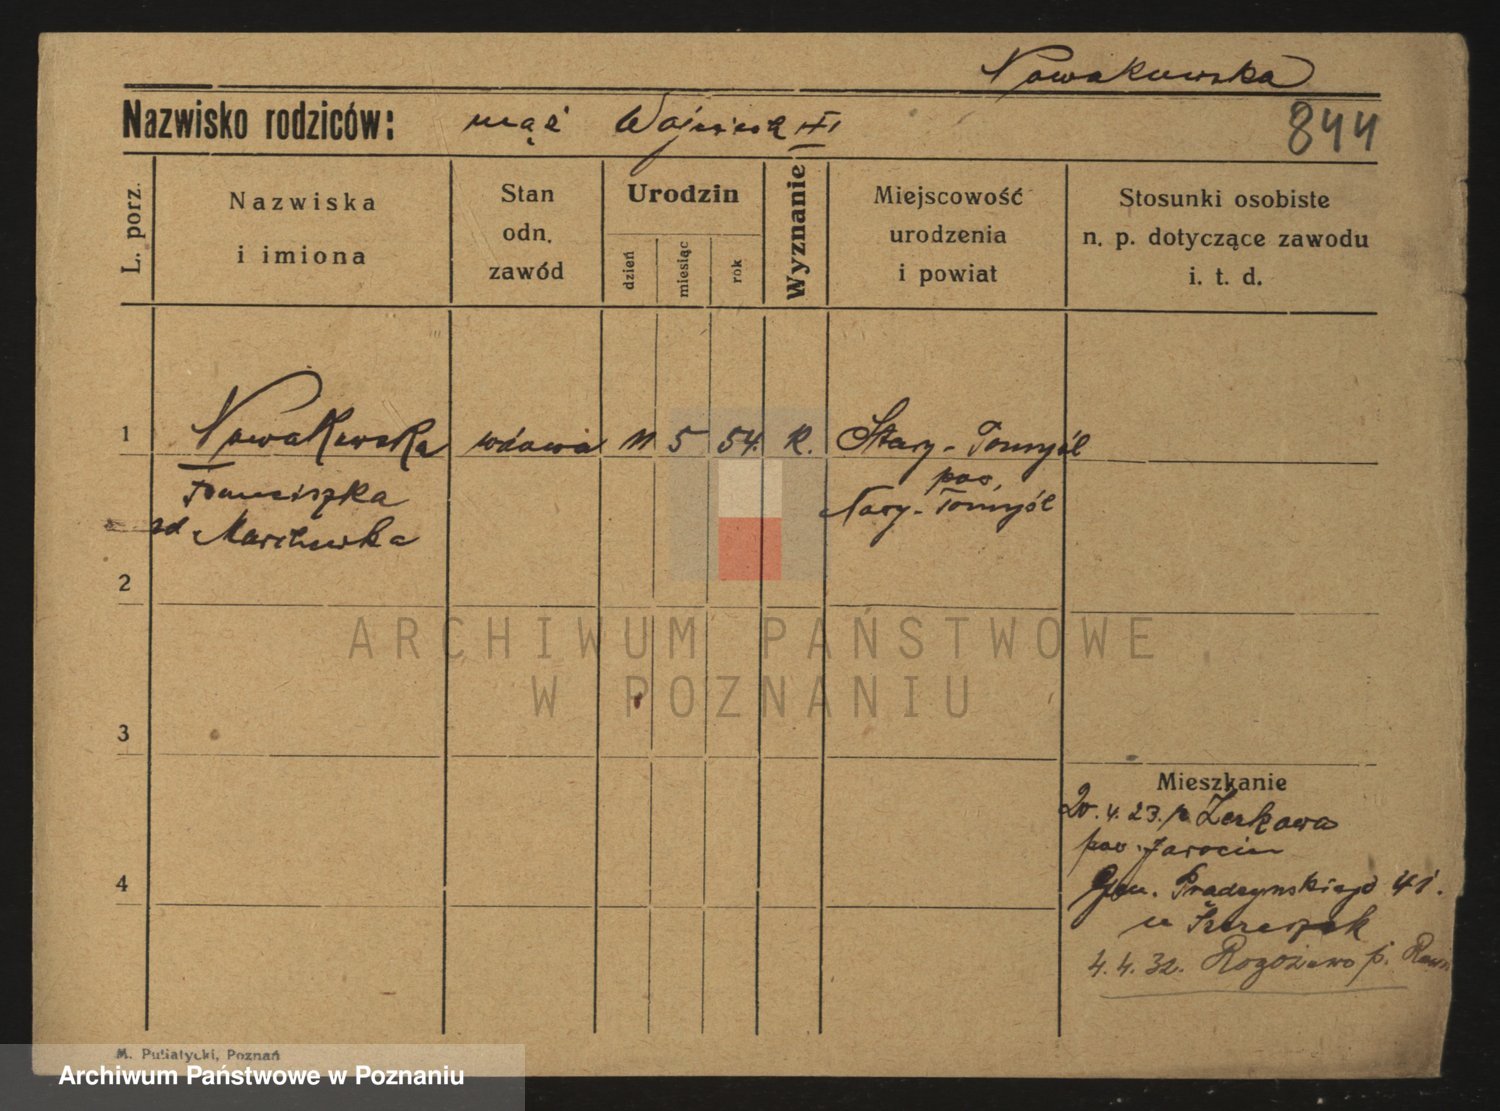 Nowakowska
844
Nazwisko rodziców: mąż Wojciech
L. porz.
Nazwiska
i imiona
Stan
odn.
zawód
Urodzin
dzień
miesiąc
rok
Wyznanie
Miejscowość
urodzenia
i powiat
Stosunki osobiste
n. p. dotyczące zawodu
i. t. d.
1
Nowakowska wdowa 11 5 54. K. Stary-Tomyśl
pow.
Franciszka Nowy-Tomyśl
zd Marchewka
2
3
4
Mieszkanie
20.4.23. z Żerkowa
pow. Jarocin
Gen. Prądzyńskiego 41.
u Szczepak
4.4.32. Rogożewo p.
M. Putiatycki, Poznań
ARCHIWUM PAŃSTWOWE
W POZNANIU
Archiwum Państwowe w Poznaniu